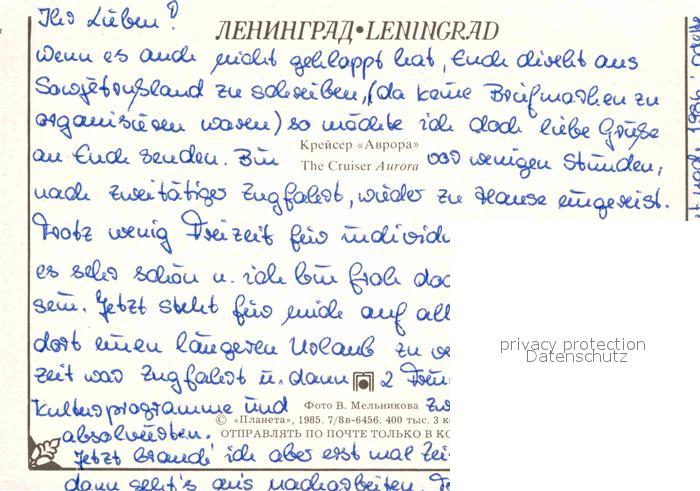 Ihr Lieben!
ЛЕНИНГРАД•LENINGRAD
wenn es auch nicht geklappt hat, Euch direkt aus
Sowjetrußland zu schreiben, (da keine Briefmarken zu
organisieren waren) so möchte ich doch liebe Grüße
an Euch senden. Bin
Крейсер «Аврора»
The Cruiser Aurora
vor wenigen Stunden,
nach zweitätiger Zugfahrt, wieder zu Hause eingereist.
Trotz wenig Freizeit für individu
es sehr schön u. ich bin froh da
sein. Jetzt steht für mich auf all
dort einen längeren Urlaub zu ve
zeit war Zugfahrt u. dann 2
privacy protection
Datenschutz
Kulturprogramme und
Фото В. Мельникова
© «Планета», 1985. 7/8в-6456. 400 тыс. 3 к
absolvierten.
ОТПРАВЛЯТЬ ПО ПОЧТЕ ТОЛЬКО В КО
Jetzt brauch' ich aber erst mal Zei
dann geht's ans nacharbeiten.